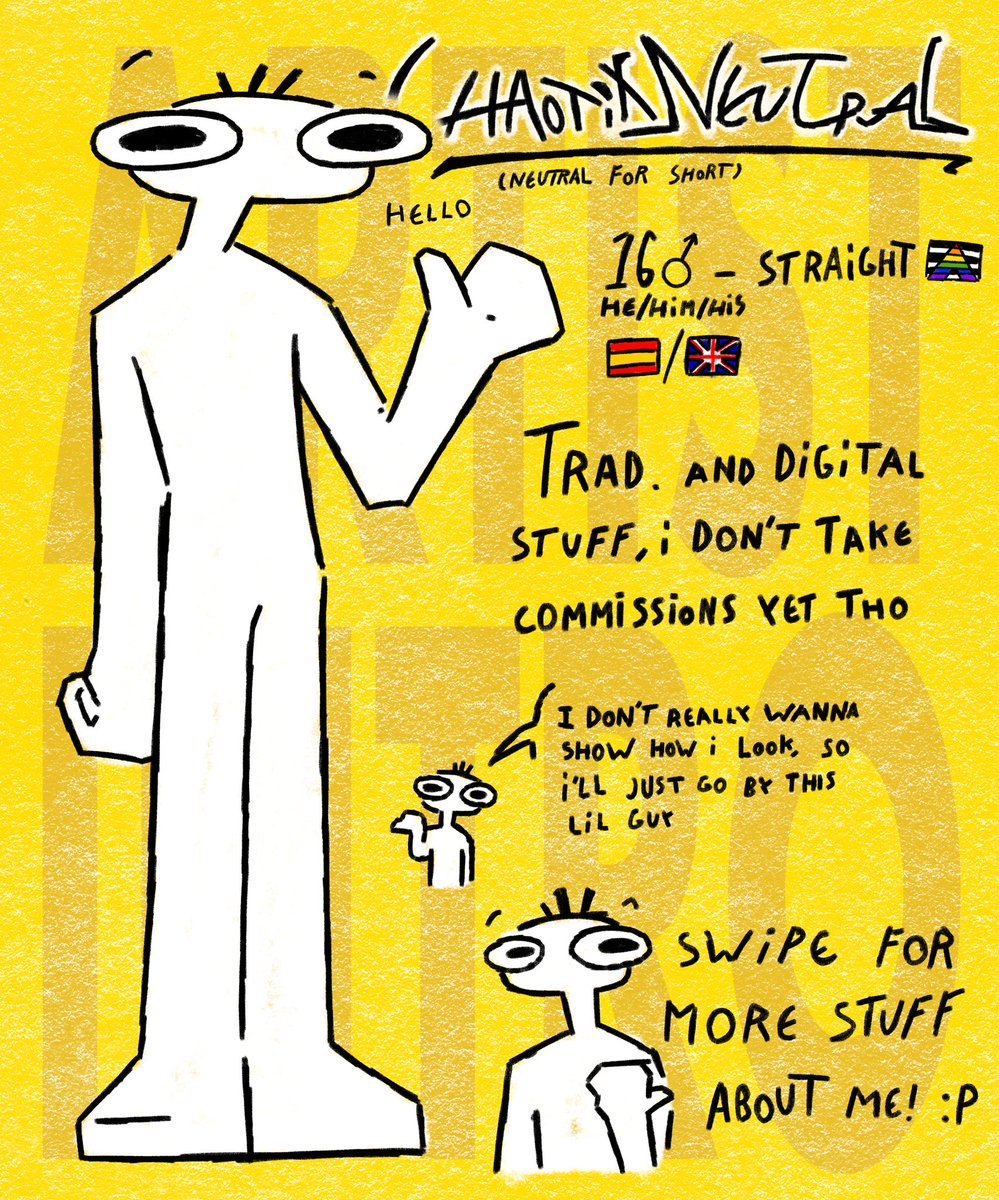 ARTIST
INTRO
CHAOTIK NEUTRAL
(NEUTRAL FOR SHORT)
HELLO
16♂ - STRAiGHT
HE/HiM/HiS
/
TRAD. AND DiGiTAL
STUFF, i DON'T TAKE
COMMiSSiONS YET THO
I DON'T REALLY WANNA
SHOW HOW i LOOK, SO
i'LL JUST GO BY THiS
LiL GUY
SWiPE FOR
MORE STUFF
ABOUT ME! :P